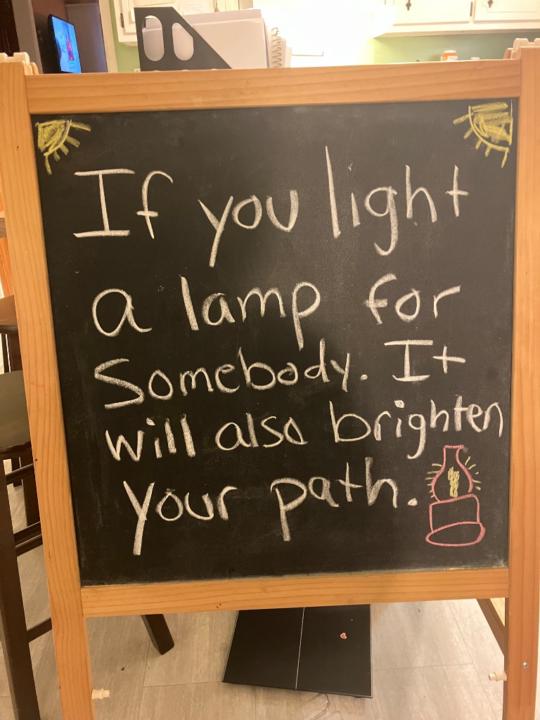 If you light
a lamp for
Somebody. It
will also brighten
your path.